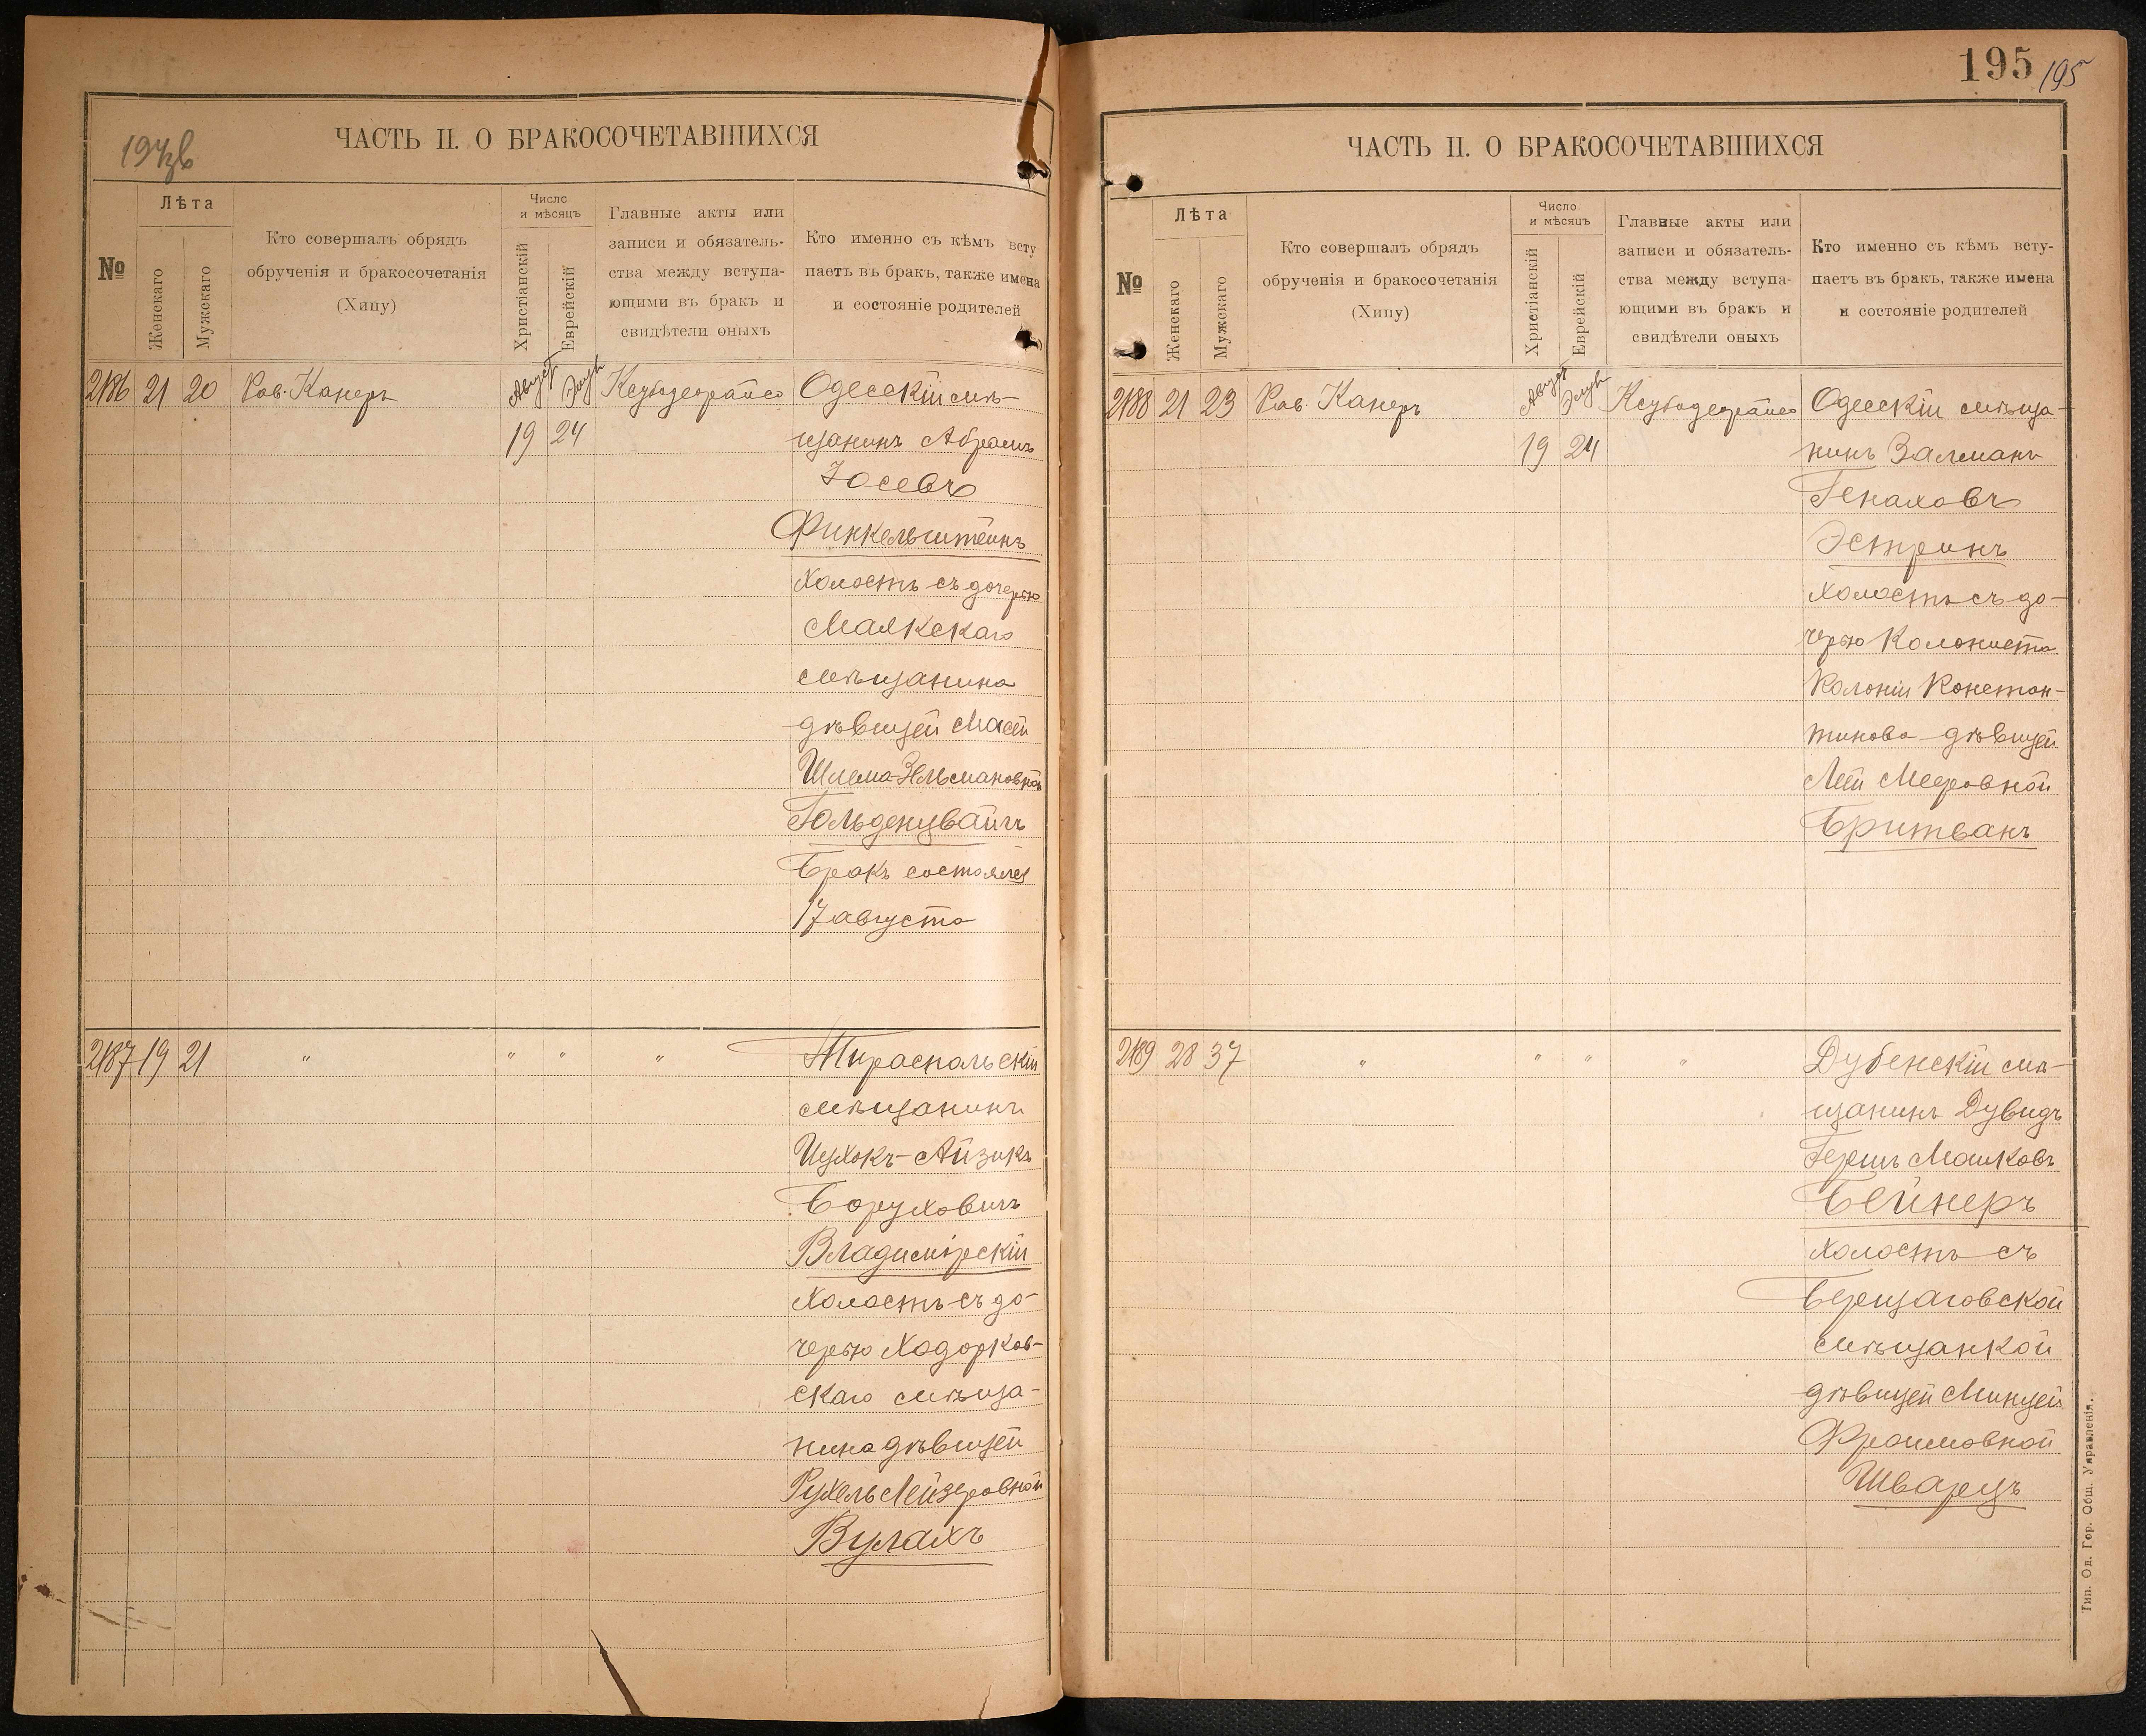 194об
ЧАСТЬ II. О БРАКОСОЧЕТАВШИХСЯ
№
Лѣта
Женскаго
Мужскаго
Кто совершалъ обрядъ
обрученія и бракосочетанія
(Хипу)
Число
и мѣсяцъ
Христіанскій
Еврейскій
Главные акты или
записи и обязатель-
ства между вступа-
ющими въ бракъ и
свидѣтели оныхъ
Кто именно съ кѣмъ всту
паетъ въ бракъ, также имена
и состояніе родителей
2186 21 20 Рав. Канеръ Август Элул Одесскій мѣ-
19 24 щанинъ Абрамъ
Іосевъ
Финкельштейнъ
холостъ съ дочерью
Маякскаго
мѣщанина
дѣвицей Масей
Шлема-Зельмановной
Гольденцвайгъ
Бракъ состоялся
17 августа
2187 19 21 " " " " Тираспольскій
мѣщанинъ
Ицхокъ-Айзикъ
Боруховичъ
Владимірскій
холостъ съ до-
черью Ходорков-
скаго мѣща-
нина дѣвицей
Рухель Лейзеровной
Вулахъ
195 195
ЧАСТЬ II. О БРАКОСОЧЕТАВШИХСЯ
№
Лѣта
Женскаго
Мужскаго
Кто совершалъ обрядъ
обрученія и бракосочетанія
(Хипу)
Число
и мѣсяцъ
Христіанскій
Еврейскій
Главные акты или
записи и обязатель-
ства между вступа-
ющими въ бракъ и
свидѣтели оныхъ
Кто именно съ кѣмъ всту-
паетъ въ бракъ, также имена
и состояніе родителей
2188 21 23 Рав. Канеръ Август Элул Одесскій мѣща-
19 24 нинъ Залманъ
Генаховъ
Эстринъ
холостъ съ до-
черью Колониста
Колоніи Констан-
тинова дѣвицей
Леей Мееровной
Бритванъ
2189 28 37 " " " " Дубенскій мѣ-
щанинъ Дувидъ
Гершъ Машковъ
Бейнеръ
холостъ съ
Берщаговской
мѣщанкой
дѣвицей Минцей
Фроимовной
Шварцъ
Тип. Од. Гор. Общ. Управленія.